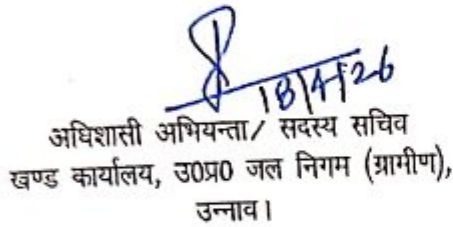 18/4/26
अधिशासी अभियन्ता/ सदस्य सचिव
खण्ड कार्यालय, उ0प्र0 जल निगम (ग्रामीण),
उन्नाव।